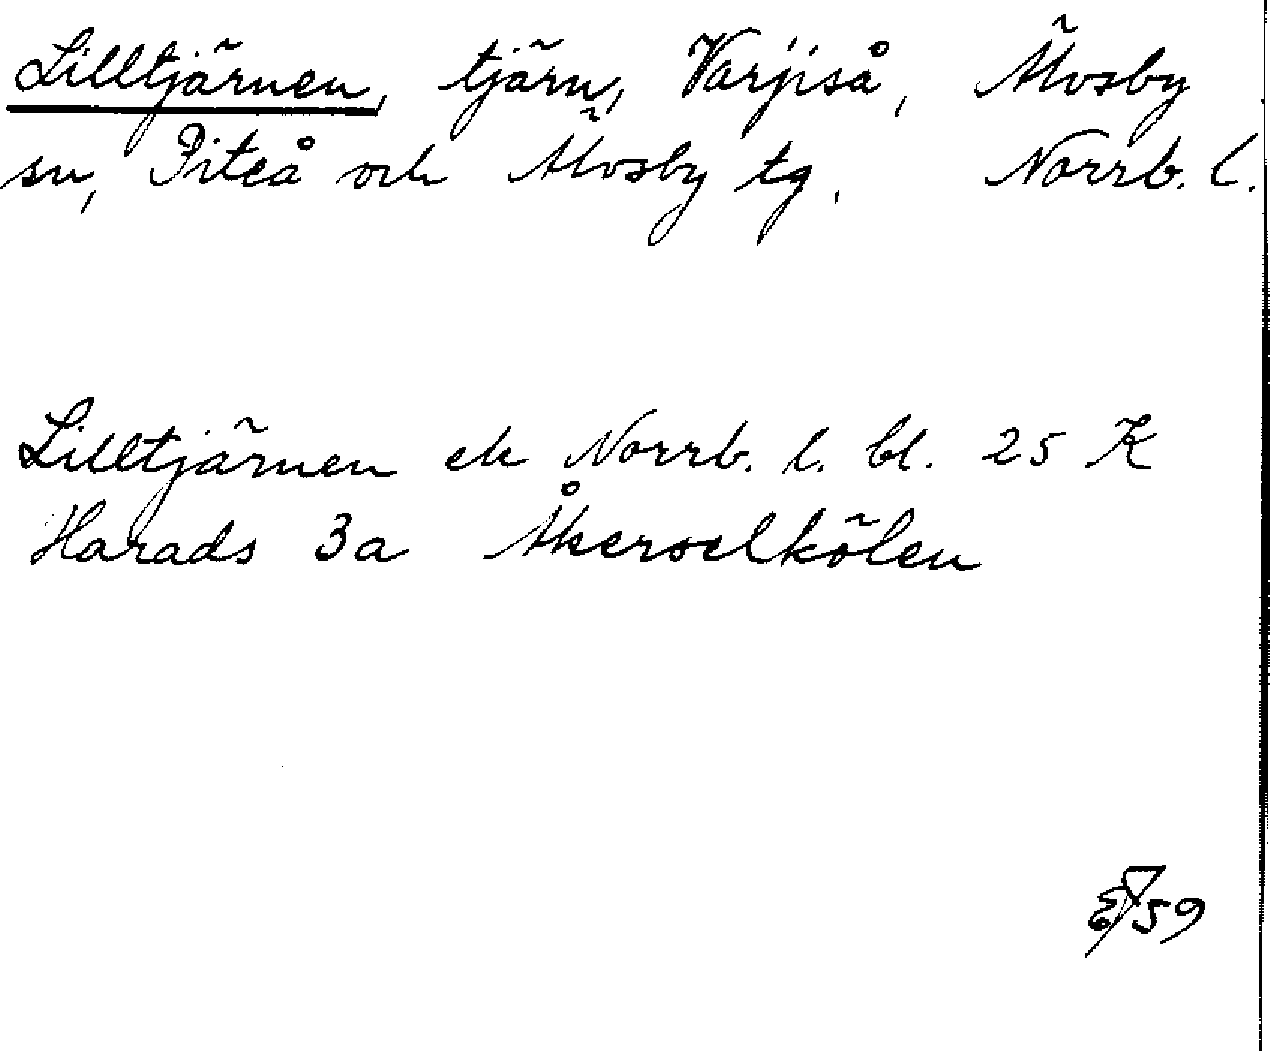 Lilltjärnen, tjärn, Varjiså, Älvsby
sn, Piteå och Älvsby tg, Norrb. l.
Lilltjärnen ek Norrb. l. bl. 25 K
Harads 3a Åkerselkölen
59